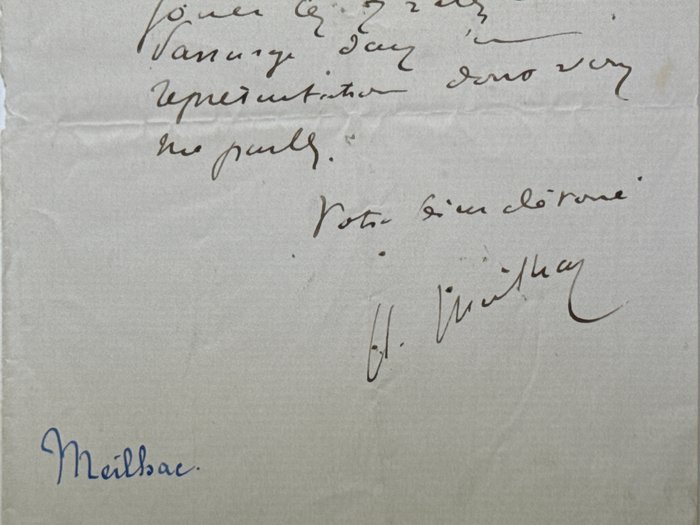 jouer les
passage dans la
représentation dont vous
me parlez.
Votre bien dévoué
H. Meilhac
Meilhac.